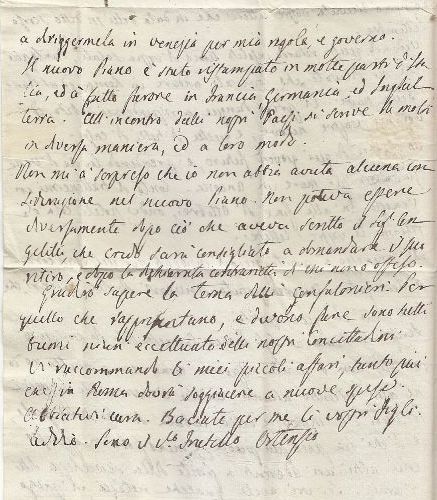 a diriggermela in venezia per mia regola e governo.
Il nuovo Piano è stato ristampato in molte parti d'Ita
lia, ed à fatto furore in Francia, Germania, ed Inghil
terra. All'incontro delli nostri Paesi si scrive da molti
in diversa maniera, ed a loro modo.
Non mi à sorpreso che io non abbia avuta alcuna con
siderazione nel nuovo Piano. Non poteva essere
diversamente dopo ciò che aveva scritto il Sig.
che credo sarà consigliato a domandare il suo
ritiro, e dopo la contrarietà di un novo offiso.
Gradirò sapere la terna delli Gonfalonieri. Per
quello che rappresentano, e devono fare sono tutti
buoni niun eccettuato delli nostri Concittadini
Vi raccommando li miei piccoli affari, tanto più
che in Roma dovrò soggiacere a nuove spese.
Abbiatevi cura. Baciate per me li vostri figli.
Addio. Sono il Fratello Ortensio